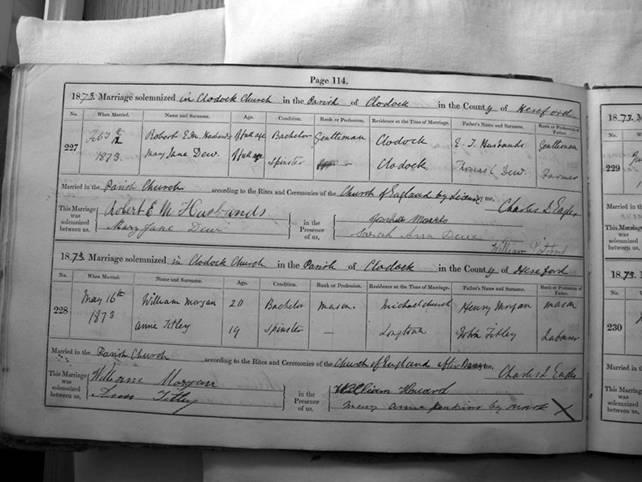 Page 114.
1873. Marriage solemnized in Clodock Church in the Parish of Clodock in the County of Hereford
No. When Married. Name and Surname. Age. Condition. Rank or Profession. Residence at the Time of Marriage. Father's Name and Surname. Rank or Profession of Father.
227 Feby 12 1873 Robert E. M. Husbands Full age Bachelor Gentleman Clodock E. J. Husbands Gentleman
Mary Jane Dew Full age Spinster — Clodock Thomas Dew Farmer
Married in the Parish Church according to the Rites and Ceremonies of the Church of England by Licence by us,
Charles L Eagles
This Marriage was solemnized between us, Robert E M Husbands in the Presence of us,
Mary Jane Dew Sarah Ann Dew
William
1873. Marriage solemnized in Clodock Church in the Parish of Clodock in the County of Hereford
No. When Married. Name and Surname. Age. Condition. Rank or Profession. Residence at the Time of Marriage. Father's Name and Surname. Rank or Profession of Father.
228 May 16th 1873 William Morgan 20 Bachelor Mason Michaelchurch Henry Morgan mason
Anne Titley 19 Spinster — Longtown John Titley Labourer
Married in the Parish Church according to the Rites and Ceremonies of the Church of England after Banns
Charles L Eagles
This Marriage was solemnized between us, William Morgan in the Presence of us, William Howard
Ann Titley Mary Anne Jenkins by mark X
1873.
No.
229
1873.
No.
230